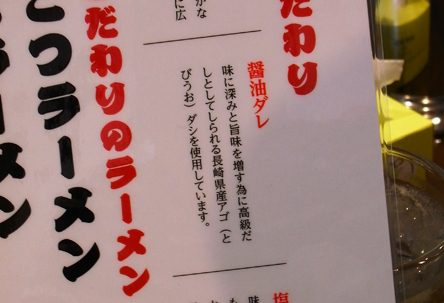 だわり
かな
に広
醤油ダレ
味に深みと旨味を増す為に高級だ
しとしてしられる長崎県産アゴ（と
びうお）ダシを使用しています。
塩
味
だわりのラーメン
とつラーメン
ラーメン